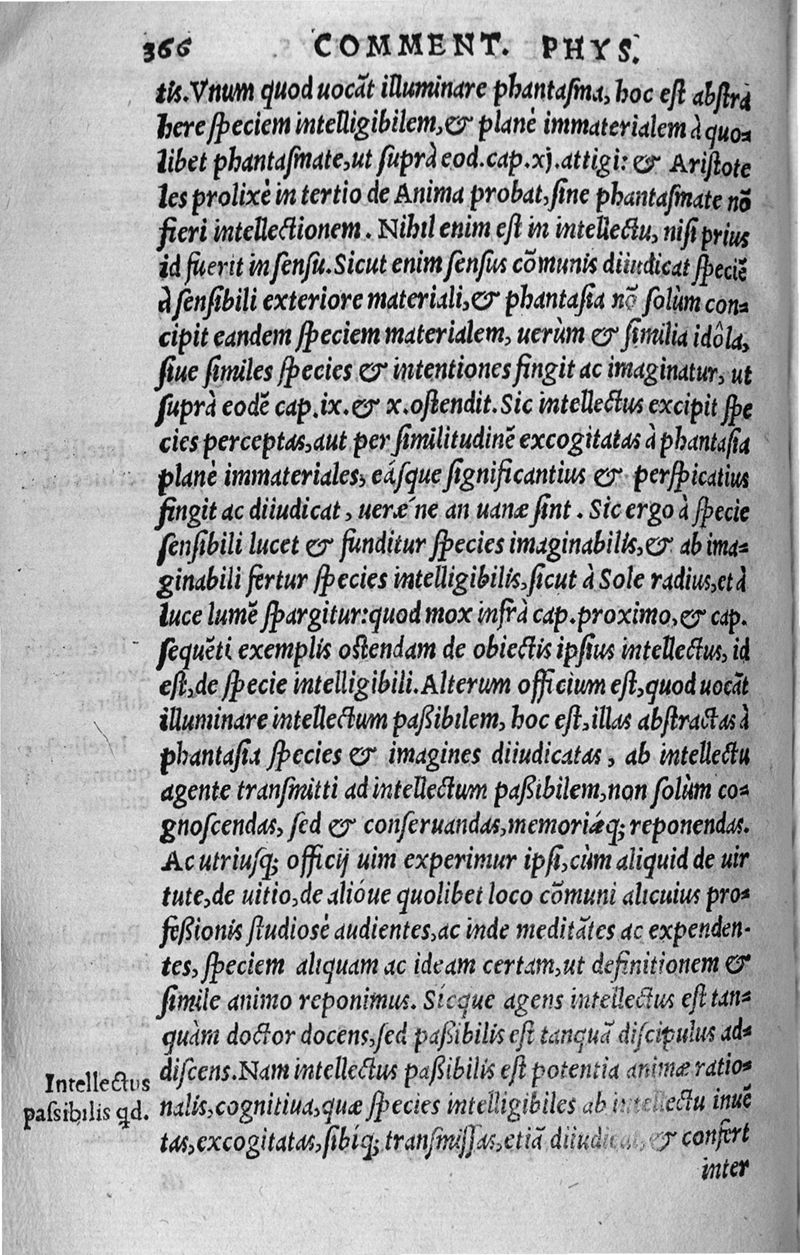 366 COMMENT. PHYS.
tis. Vnum quod uocāt illuminare phantasma, hoc est abstra
here speciem intelligibilem, & planè immaterialem à quo-
libet phantasmate, ut suprà eod. cap. xj. attigi: & Aristote
les prolixè in tertio de Anima probat, sine phantasmate nō
fieri intellectionem. Nihil enim est in intellectu, nisi prius
id fuerit in sensu. Sicut enim sensus cōmunis diiudicat speciē
à sensibili exteriore materiali, & phantasia nō solùm con-
cipit eandem speciem materialem, uerùm & similia idôla,
siue similes species & intentiones fingit ac imaginatur, ut
suprà eodē cap. ix. & x. ostendit. Sic intellectus excipit spe
cies perceptas, aut per similitudinē excogitatas à phantasia
planè immateriales, eásque significantius & perspicatius
fingit ac diiudicat, ueræ´ne an uanæ sint. Sic ergo à specie
sensibili lucet & funditur species imaginabilis, & ab ima-
ginabili fertur species intelligibilis, sicut à Sole radius, et à
luce lumē spargitur: quod mox infrà cap. proximo, & cap.
sequēti exemplis ostendam de obiectis ipsius intellectus, id
est, de specie intelligibili. Alterum officium est, quod uocāt
illuminare intellectum paßibilem, hoc est, illas abstractas à
phantasia species & imagines diiudicatas, ab intellectu
agente transmitti ad intellectum paßibilem, non solùm co-
gnoscendas, sed & conseruandas, memoriáq; reponendas.
Ac utriusq; officij uim experimur ipsi, cùm aliquid de uir
tute, de uitio, de alióue quolibet loco cōmuni alicuius pro-
feßionis studiosè audientes, ac inde meditātes ac expenden-
tes, speciem aliquam ac ideam certam, ut definitionem &
simile animo reponimus. Sicque agens intellectus est tan-
quàm doctor docens, sed paßibilis est tanquā discipulus ad-
discens. Nam intellectus paßibilis est potentia animæ ratio-
Intellectus
passibilis qd.
nalis, cognitiua, quæ species intelligibiles ab intellectu inuē
tas, excogitatas, sibíq; transmissas, etiā diiudicat, & confert
inter